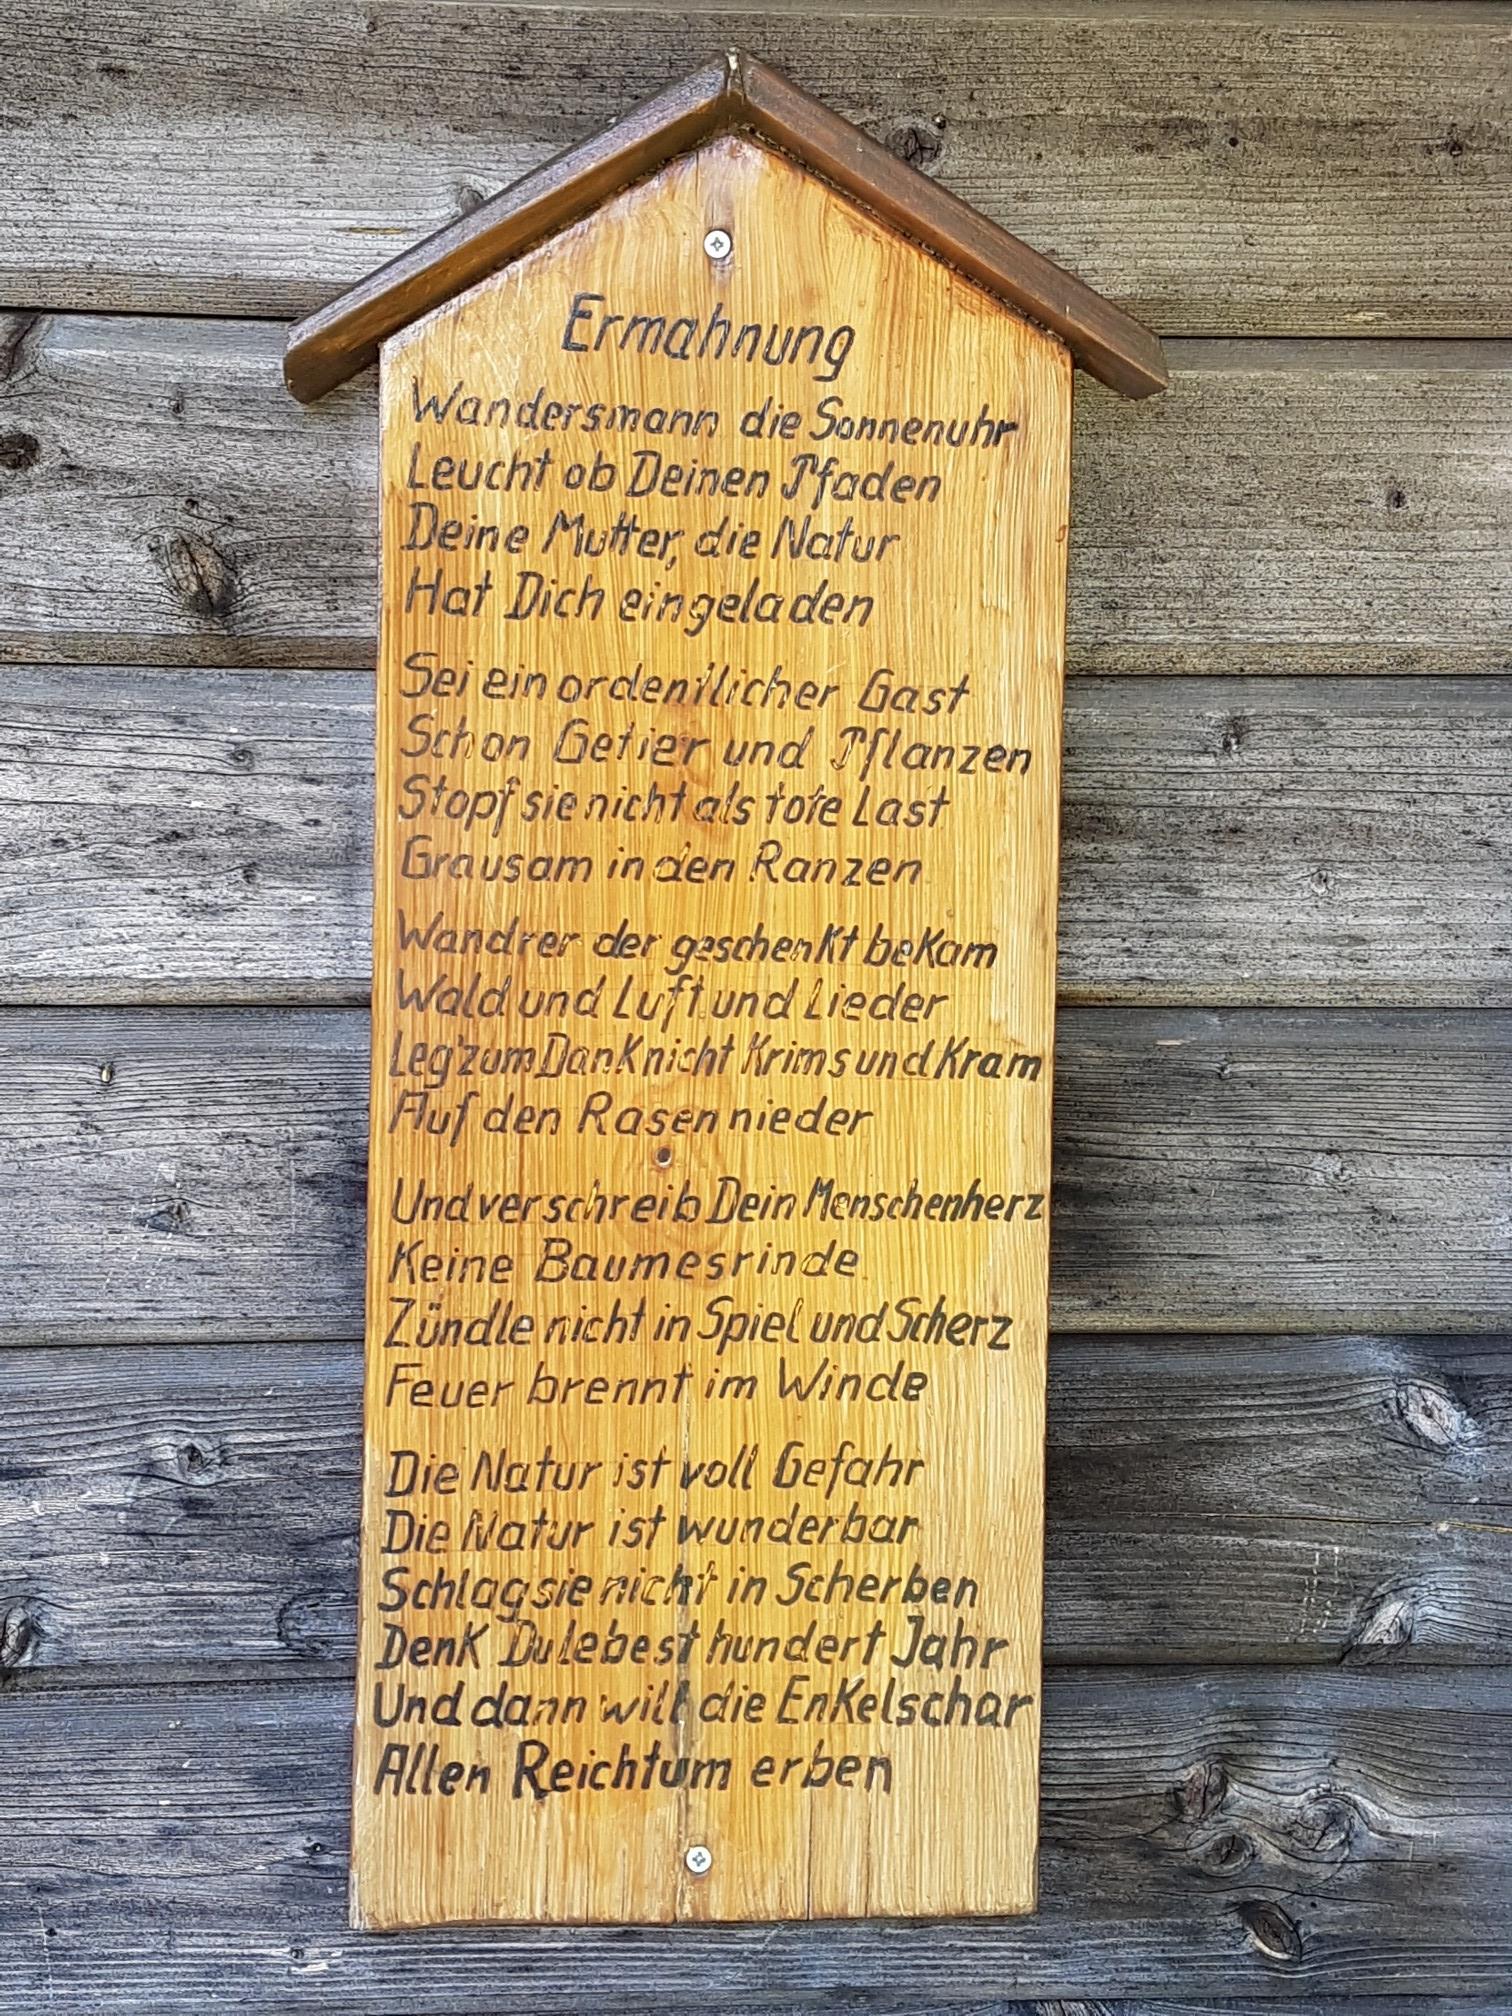 Ermahnung
Wandersmann die Sonnenuhr
Leucht ob Deinen Pfaden
Deine Mutter, die Natur
Hat Dich eingeladen
Sei ein ordentlicher Gast
Schon Getier und Pflanzen
Stopf sie nicht als tote Last
Grausam in den Ranzen
Wandrer der geschenkt bekam
Wald und Luft und Lieder
Leg' zum Dank nicht Krims und Kram
Auf den Rasen nieder
Und verschreib Dein Menschenherz
Keine Baumesrinde
Zündle nicht in Spiel und Scherz
Feuer brennt im Winde
Die Natur ist voll Gefahr
Die Natur ist wunderbar
Schlag sie nicht in Scherben
Denk Du lebest hundert Jahr
Und dann will die Enkelschar
Allen Reichtum erben